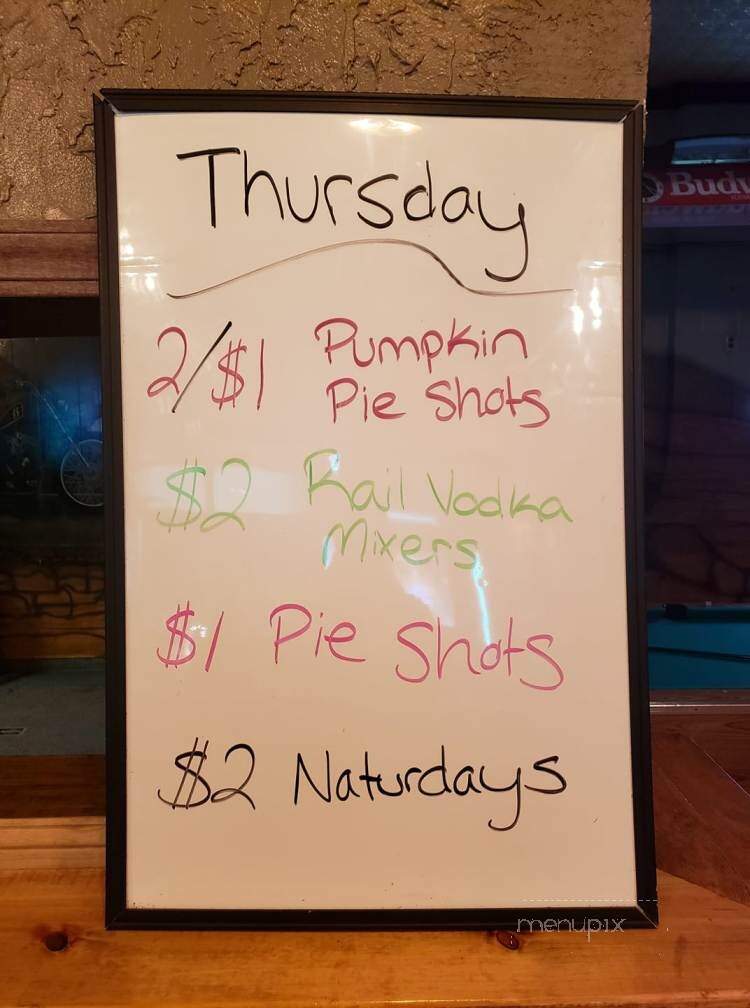 Thursday
2/$1 Pumpkin
Pie Shots
$2 Rail Vodka
Mixers
$1 Pie Shots
$2 Naturdays
Budw
menupix